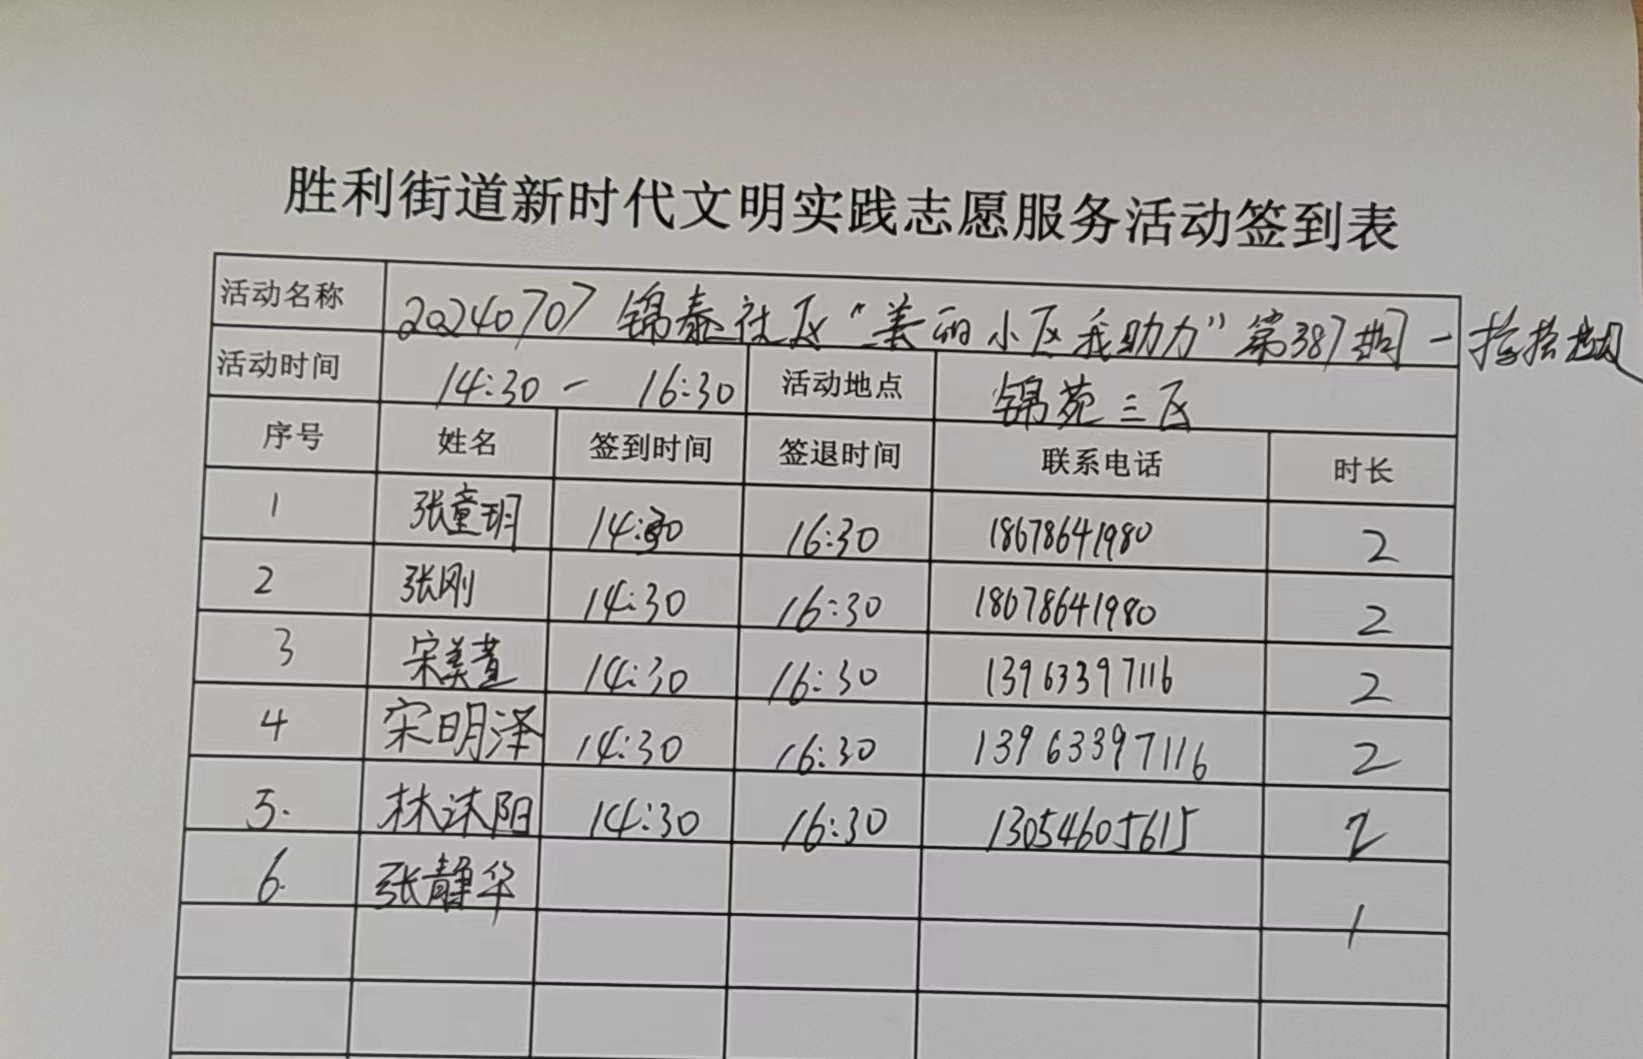 胜利街道新时代文明实践志愿服务活动签到表
活动名称 20240707 锦泰社区“美丽小区我助力”第387期-捡拾垃圾
活动时间 14:30 - 16:30 活动地点 锦苑三区
序号 姓名 签到时间 签退时间 联系电话 时长
1 张童玥 14:30 16:30 18678641980 2
2 张刚 14:30 16:30 18678641980 2
3 宋美萱 14:30 16:30 13963397116 2
4 宋明泽 14:30 16:30 13963397116 2
5. 林沐阳 14:30 16:30 13054605615 2
6. 张静华 1